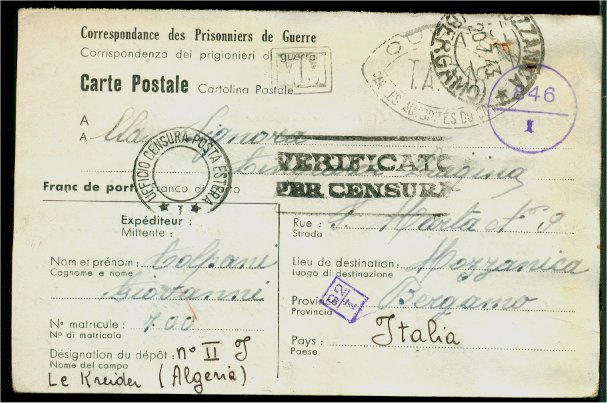 Correspondance des Prisonniers de Guerre
Corrispondenza dei prigionieri di guerra
Carte Postale Cartolina Postale
MOZZANICA
20.7.43
BERGAMO
T.A.
PAR LES AUTORITÉS DU
846
I
A
A
Alla Signora
Regina
UFFICIO CENSURA POSTA ESTERA
VERIFICATO
PER CENSURA
Franc de port Franco di porto
Expéditeur :
Mittente :
Nom et prénom : Colpani
Cognome e nome
Giovanni
Nº matricule : 700
Nº di matricola
Désignation du dépôt : nº II J
Nome del campo
Le Kreider (Algeria)
Rue : S. Marta Nº 9
Strada
Lieu de destination : Mozzanica
Luogo di destinazione
Province Bergamo
Provincia
Pays : Italia
Paese